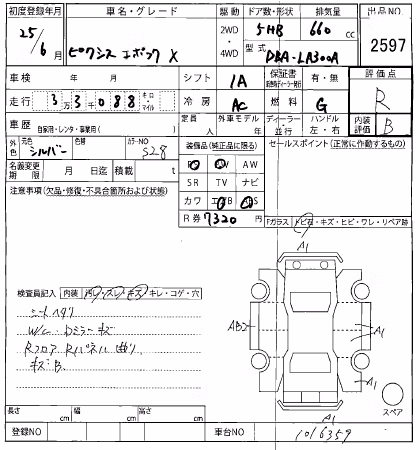 初度登録年月 車名・グレード 駆動 ドア数・形状 排気量 出品NO
25/6月 ピクシス エポック X 2WD・4WD 5HB 660cc 2597
型式 DBA-LA300A
車検 年 月 シフト IA 保証書 有・無 評価点
走行 3万3千088 キロ・マイル 冷房 AC 燃料 G R
車歴 自家用・レンタ・事業用( ) 定員 外車モデル年 ディーラー・並行 ハンドル 左・右 内装評価 B
外色 元色 シルバー 色替 カラーNO S28
装備品(純正品に限る) セールスポイント(正常に作動するもの)
名義変更期限 月 日迄 積載 t
PS PW AW
SR TV ナビ
注意事項(欠品・修復・不具合箇所および状態)
カワ エアB ABS
R券 7320 円
Fガラス トビ石・キズ・ヒビ・ワレ・リペア跡
A1
検査員記入 内装 汚レ・スレ・キズ・キレ・コゲ・穴
シートヘタリ
W/C Dミラーキズ
Rフロア Rパネル曲り
キズB
AB2 A1
A1
A1
スペア
長さ cm 幅 cm 高さ cm
登録NO 車台NO 1016359